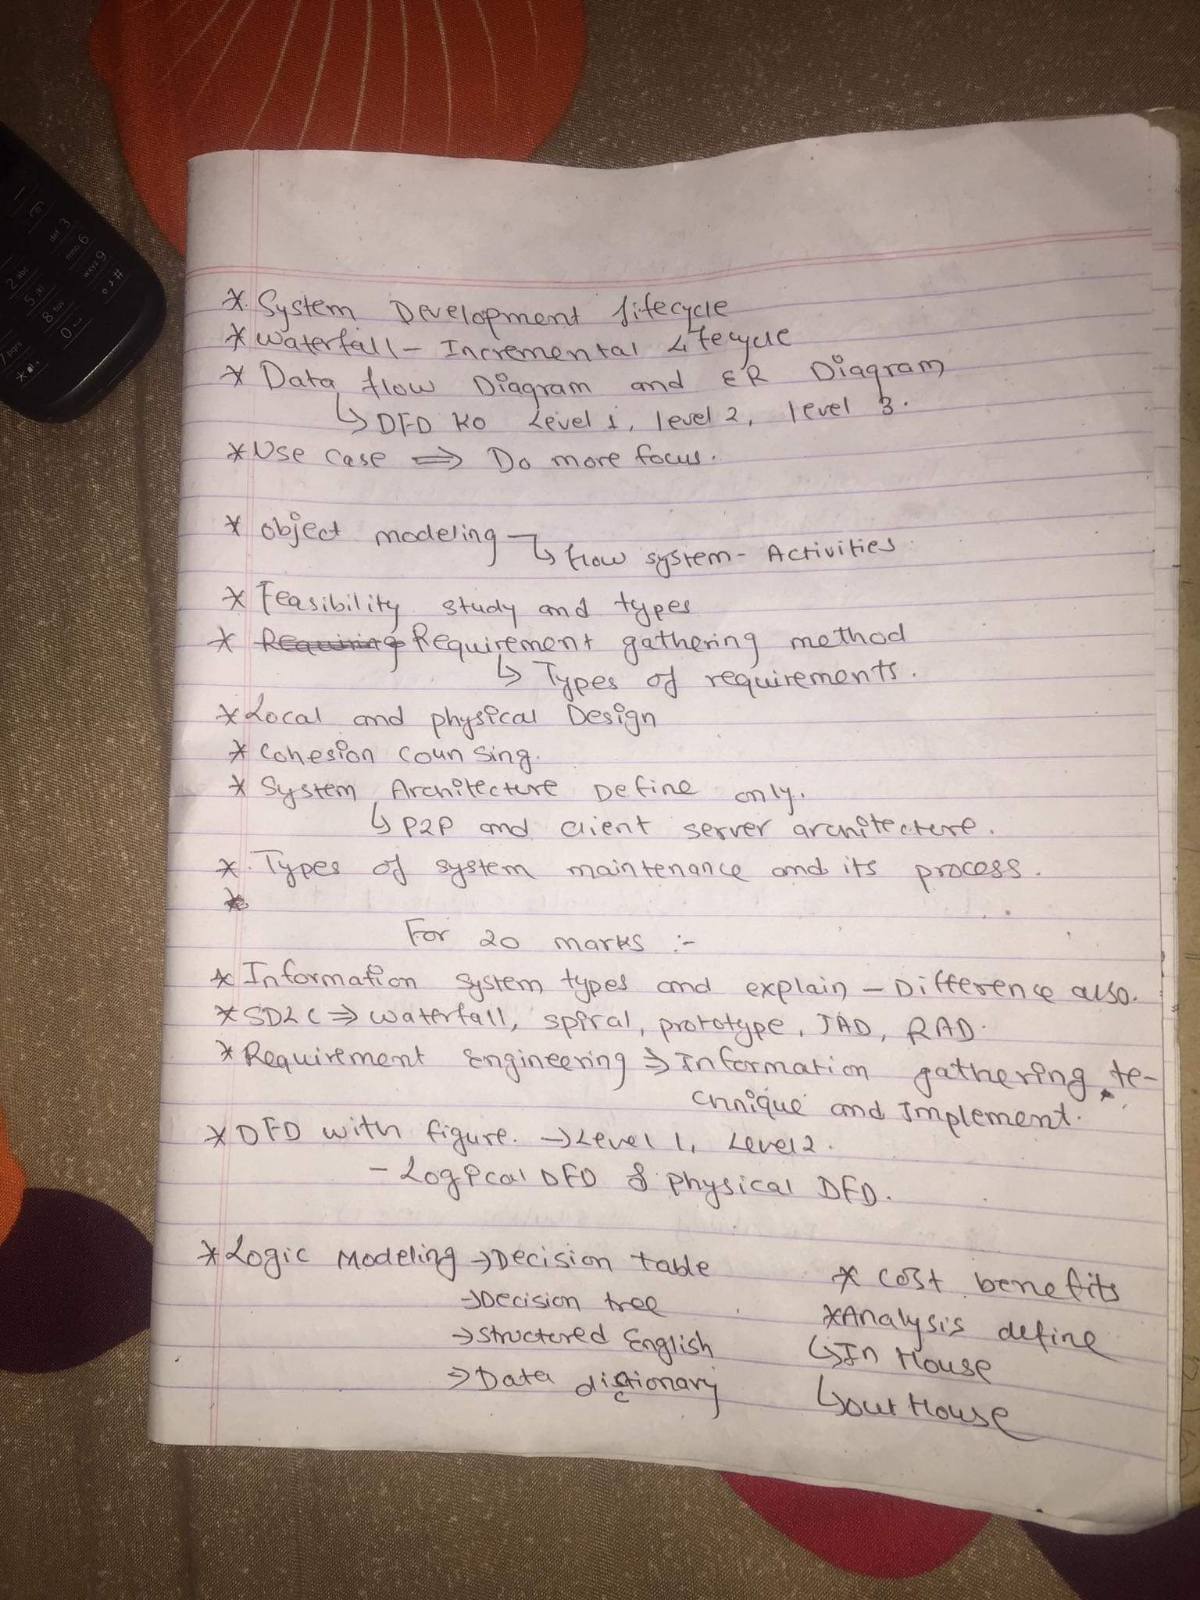 * System Development Lifecycle
* Waterfall - Incremental Lifecycle
* Data flow Diagram and ER Diagram
↳ DFD KO Level 1, level 2, level 3.
* Use case ⇒ Do more focus.
* Object modeling ↳ flow system - Activities
* Feasibility study and types
* Requiring Requirement gathering method
↳ Types of requirements.
* Local and physical Design
* Cohesion Counsing.
* System Architecture Define only.
↳ P2P and client server architecture.
* Types of system maintenance and its process.
*
For 20 marks :-
* Information system types and explain - Difference also.
* SDLC ⇒ Waterfall, spiral, prototype, JAD, RAD.
* Requirement Engineering ⇒ Information gathering te-
chnique and Implement.
* DFD with figure. → Level 1, Level 2.
- Logical DFD & physical DFD.
* Logic Modeling → Decision table
→ Decision tree
→ Structered English
→ Data dictionary
* Cost benefits
* Analysis define
↳ In House
↳ out House